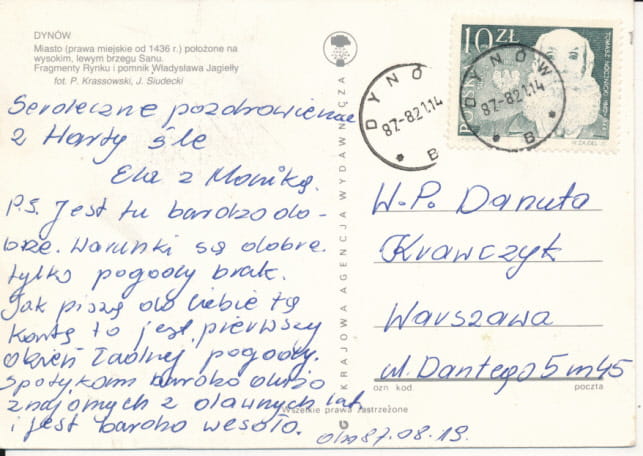 DYNÓW
Miasto (prawa miejskie od 1436 r.) położone na
wysokim, lewym brzegu Sanu.
Fragmenty Rynku i pomnik Władysława Jagiełły
fot. P. Krassowski, J. Siudecki
Serdeczne pozdrowienia
z Harty śle
Ela z Moniką.
P.S. Jest tu bardzo do-
brze. Warunki są dobre.
tylko pogody brak.
Jak piszę do Ciebie tę
kartę to jest pierwszy
dzień ładnej pogody.
Spotykam bardzo dużo
znajomych z dawnych lat
i jest bardzo wesoło.
dn. 87.08.19.
KRAJOWA AGENCJA WYDAWNICZA
Wszelkie prawa zastrzeżone
10 ZŁ
POLSKA
TOMASZ NOCZNICKI
DYNÓW
87-8.21.14
B
DYNÓW
87-8.21.14
B
W.P. Danuta
Krawczyk
Warszawa
ul. Dantego 5 m 45
ozn kod
poczta